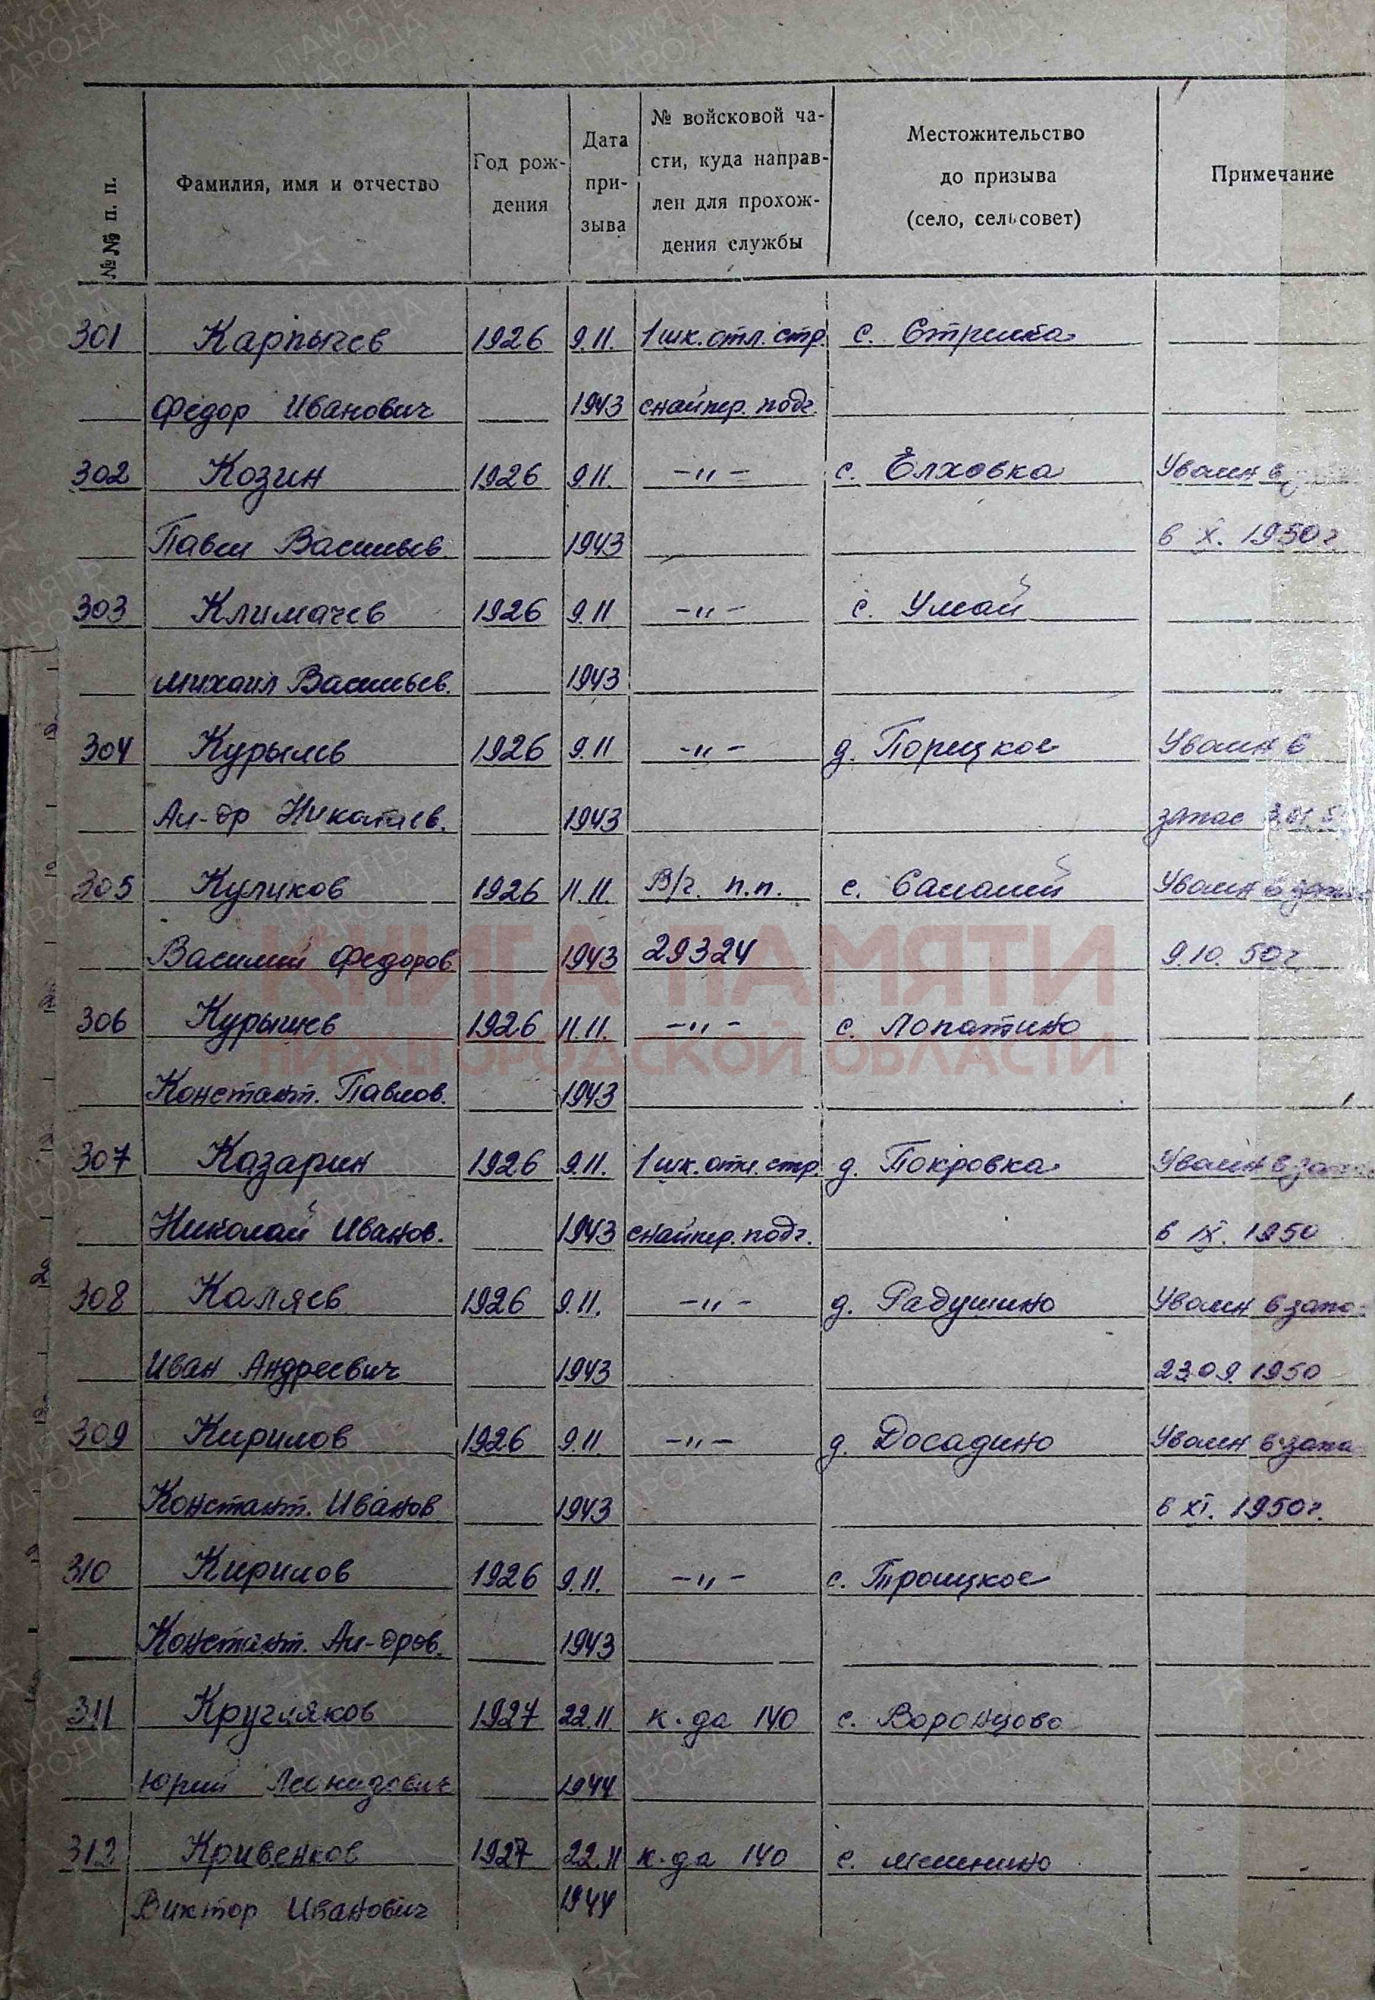 №№ п. п.
Фамилия, имя и отчество
Год рож-
дения
Дата
при-
зыва
№ войсковой ча-
сти, куда направ-
лен для прохож-
дения службы
Местожительство
до призыва
(село, сельсовет)
Примечание
301 Карпычев 1926 9.11. 1 шк. отл. стр. с. Стрелка
Федор Иванович 1943 снайпер. подг.
302 Козин 1926 9.11. -"- с. Елховка Уволен в
Павел Васильев 1943 в X. 1950 г
303 Климачев 1926 9.11 -"- с. Умай
Михаил Васильев. 1943
304 Курылев 1926 9.11 -"- д. Порецкое Уволен в
Ал-др Николаев. 1943 запас
305 Куликов 1926 11.11. В/ч. п.п. с. Салалей Уволен в запас
Василий Федоров 1943 29324 9.10. 50 г.
306 Курышев 1926 11.11. -"- с. Лопатино
Констант. Павлов. 1943
307 Казарин 1926 9.11. 1 шк. отл. стр. д. Покровка Уволен в запас
Николай Иванов. 1943 снайпер. подг. в IX. 1950
308 Каляев 1926 9.11. -"- д. Радушино Уволен в запа-
Иван Андреевич 1943 23.09. 1950
309 Кирилов 1926 9.11 -"- д. Досадино Уволен в запа-
Констант. Иванов 1943 в XI. 1950 г.
310 Кирилов 1926 9.11. -"- с. Троицкое
Констант. Ал-дров. 1943
311 Кругляков 1927 22.11 к-да 140 с. Воронцово
Юрий Леонидович 1944
312 Кривенков 1927 22.11 к-да 140 с.
Виктор Иванович 1944
КНИГА ПАМЯТИ
НИЖЕГОРОДСКОЙ ОБЛАСТИ
ПАМЯТЬ
НАРОДА